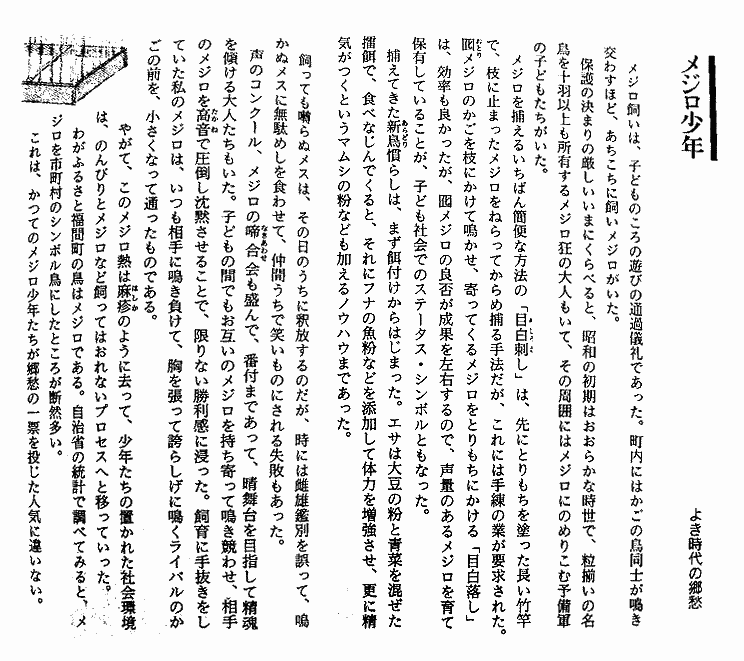 メジロ少年
よき時代の郷愁
メジロ飼いは、子どものころの遊びの通過儀礼であった。町内にはかごの鳥同士が鳴き
交わすほど、あちこちに飼いメジロがいた。
保護の決まりの厳しいいまにくらべると、昭和の初期はおおらかな時世で、粒揃いの名
鳥を十羽以上も所有するメジロ狂の大人もいて、その周囲にはメジロにのめりこむ予備軍
の子どもたちがいた。
メジロを捕えるいちばん簡便な方法の「目白刺し」は、先にとりもちを塗った長い竹竿
で、枝に止まったメジロをねらってからめ捕る手法だが、これには手練の業が要求された。
囮メジロのかごを枝にかけて鳴かせ、寄ってくるメジロをとりもちにかける「目白落し」
は、効率も良かったが、囮メジロの良否が成果を左右するので、声量のあるメジロを育て
保有していることが、子ども社会でのステータス・シンボルともなった。
捕えてきた新鳥慣らしは、まず餌付けからはじまった。エサは大豆の粉と青菜を混ぜた
擂餌で、食べなじんでくると、それにフナの魚粉などを添加して体力を増強させ、更に精
気がつくというマムシの粉なども加えるノウハウまであった。
飼っても囀らぬメスは、その日のうちに釈放するのだが、時には雌雄鑑別を誤って、鳴
かぬメスに無駄めしを食わせて、仲間うちで笑いものにされる失敗もあった。
声のコンクール、メジロの啼合会も盛んで、番付まであって、晴舞台を目指して精魂
を傾ける大人たちもいた。子どもの間でもお互いのメジロを持ち寄って鳴き競わせ、相手
のメジロを高音で圧倒し沈黙させることで、限りない勝利感に浸った。飼育に手抜きをし
ていた私のメジロは、いつも相手に鳴き負けて、胸を張って誇らしげに鳴くライバルのか
ごの前を、小さくなって通ったものである。
やがて、このメジロ熱は麻疹のように去って、少年たちの置かれた社会環境
は、のんびりとメジロなど飼ってはおれないプロセスへと移っていった。
わがふるさと福間町の鳥はメジロである。自治省の統計で調べてみると、メ
ジロを市町村のシンボル鳥にしたところが断然多い。
これは、かつてのメジロ少年たちが郷愁の一票を投じた人気に違いない。